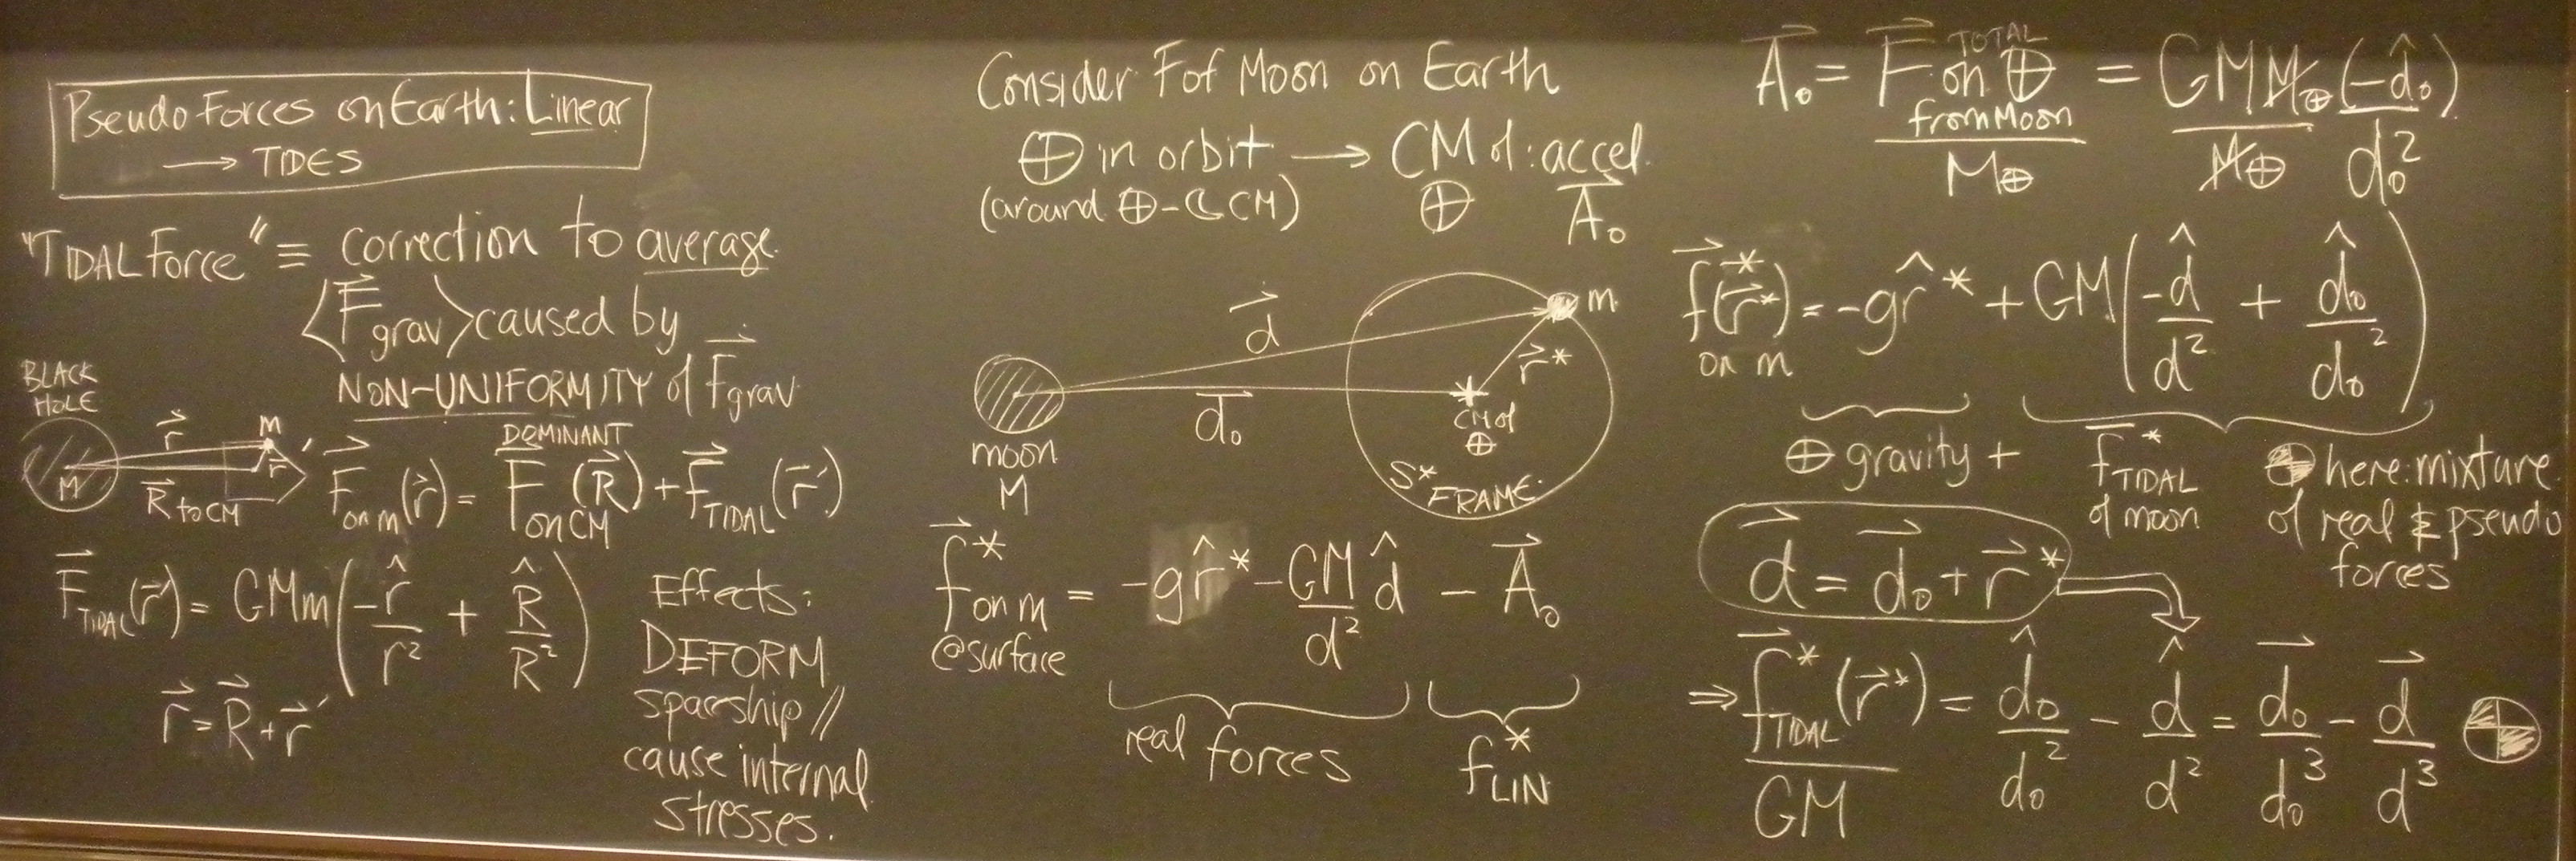 Pseudo Forces on Earth: Linear
→ TIDES
"TIDAL Force" ≡ correction to average
⟨F⃗grav⟩ caused by
NON-UNIFORMITY of F⃗grav
BLACK HOLE
M
r⃗
m
r⃗′
R⃗ to CM
F⃗on m(r⃗) = F⃗on CM(R⃗) + f⃗TIDAL(r⃗′)
DOMINANT
F⃗TIDAL(r⃗′) = GMm(-r̂/r² + R̂/R²)
r⃗ = R⃗ + r⃗′
Effects:
DEFORM
spaceship //
cause internal
stresses.
Consider F of Moon on Earth
⊕ in orbit → CM of ⊕ : accel. A⃗₀
(around ⊕-☾ CM)
d⃗
m
r⃗*
d⃗₀
CM of ⊕
moon
M
S* FRAME
f⃗*on m @surface = -gr̂* - GM/d² d̂ - A⃗₀
real forces
f*LIN
A⃗₀ = F⃗ TOTAL on ⊕ from Moon / M⊕ = GMM⊕/M⊕ (-d̂₀)/d₀²
f⃗*(r⃗*) on m = -gr̂* + GM(-d̂/d² + d̂₀/d₀²)
⊕ gravity + f⃗*TIDAL of moon
here: mixture
of real & pseudo
forces
d⃗ = d⃗₀ + r⃗*
⇒ f⃗*TIDAL(r⃗*)/GM = d̂₀/d₀² - d̂/d² = d⃗₀/d₀³ - d⃗/d³